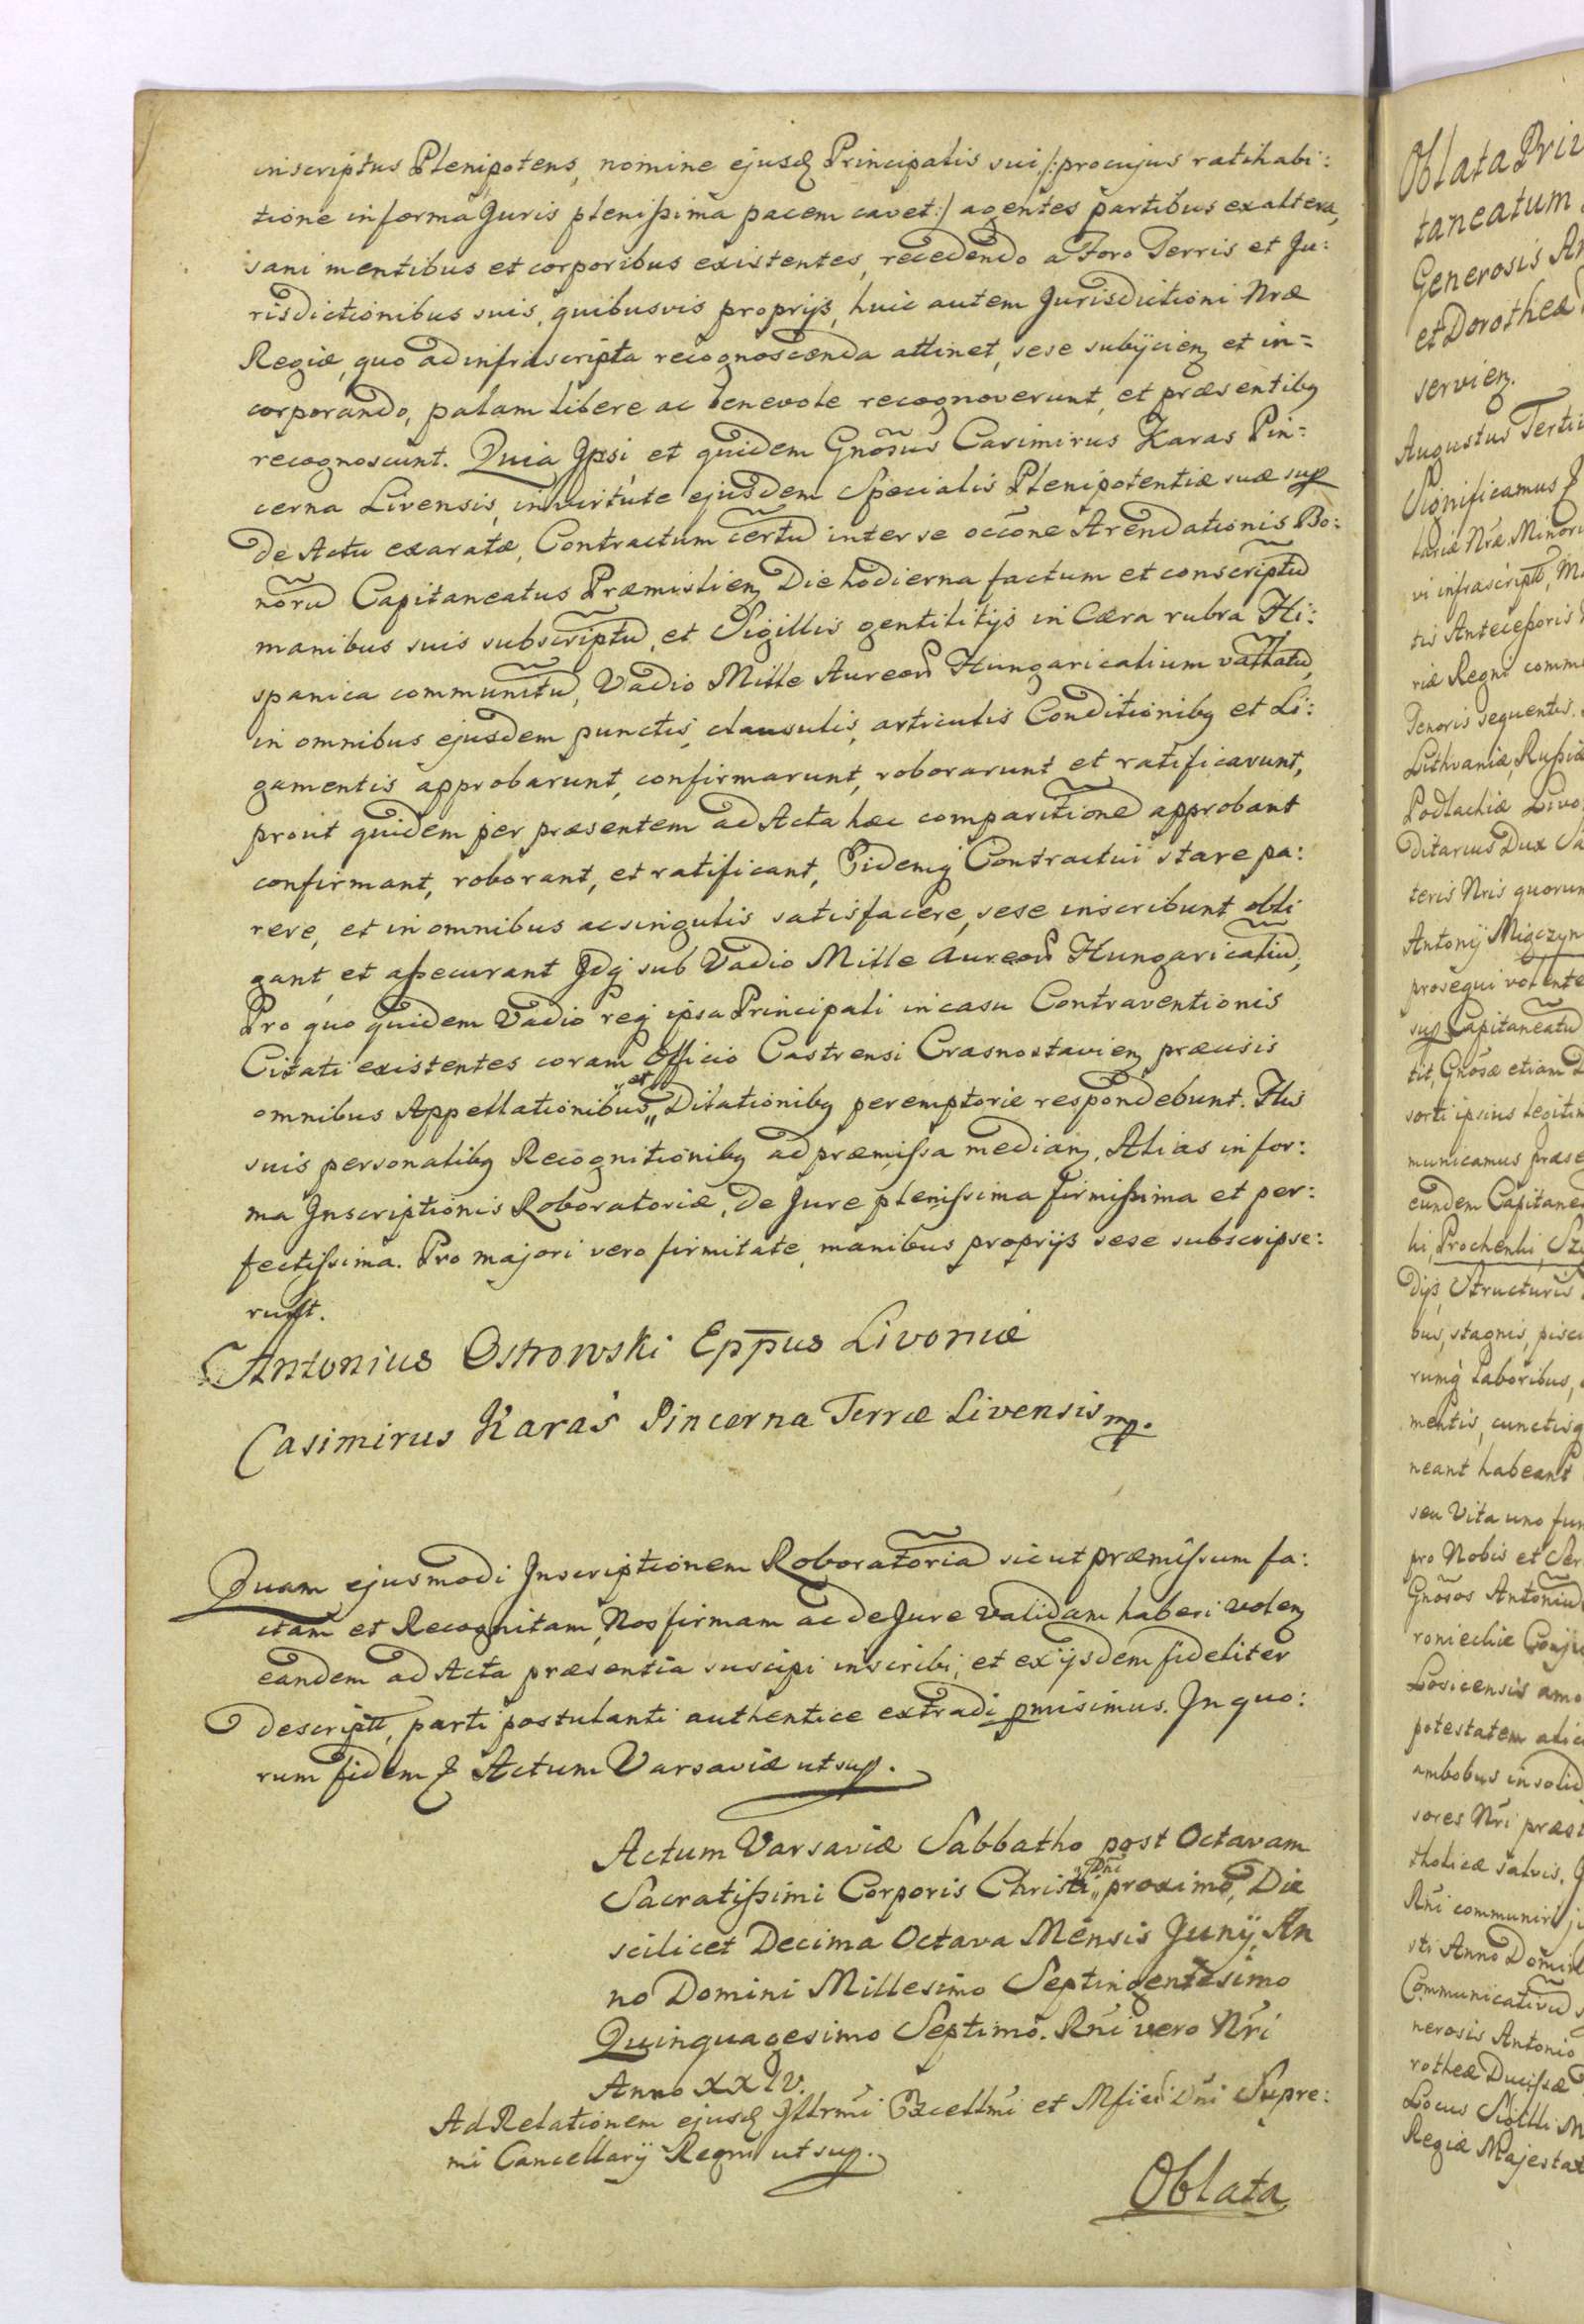 inscriptus Plenipotens, nomine ejusq Principalis sui /:pro cujus ratihabi:
tione in forma Juris plenissima pacem cavet:/ agentes partibus ex altera,
sani mentibus et corporibus existentes, recedendo a Foro Terris et Ju:
risdictionibus suis, quibusvis proprijs, huic autem Jurisdictioni Nræ
Regiæ, quo ad infrascripta recognoscenda attinet, sese subijcienz et in=
corporando, palam libere ac benevole recognoverunt, et præsentibq
recognoscunt. Quia Ipsi, et quidem Gnõsus Casimirus Karas Pin=
cerna Livensis, in virtute ejusdem Specialis Plenipotentiæ suæ sup
de Actu exaratæ, Contractum certũ inter se occõne Arendationis Bo:
norũ Capitaneatus Præmislienz Die hodierna factum et conscriptũ
manibus suis subscriptũ, et Sigillis gentilitijs in Cæra rubra Hi:
spanica communitũ, Vadio Mille Aureorũ Hungaricalium vallatũ,
in omnibus ejusdem punctis, clausulis, articulis Conditionibq et Li:
gamentis approbarunt, confirmarunt, roborarunt et ratificarunt,
prout quidem per præsentem ad Acta hæc comparitionẽ approbant
confirmant, roborant, et ratificant, Eidemq Contractui stare pa:
rere, et in omnibus ac singulis satisfacere, sese inscribunt obli
gant, et assecurant Idq sub Vadio Mille Aureorũ Hungaricaliũ,
Pro quo quidem Vadio req ipsa Principali in casu Contraventionis
Citati existentes coram Officio Castrensi Crasnostavienz præcisis
omnibus Appellationibus „et„ Dilationibq peremptorie respondebunt. His
suis personalibq Recognitionibq ad præmissa medianz, Alias in for:
ma Inscriptionis Roboratoriæ, de Jure plenissima firmissima et per:
fectissima. Pro majori vero firmitate, manibus proprijs sese subscripse:
runt.
Antonius Ostrowski Epp̃us Livoniæ
Casimirus Karaś Pincerna Terræ Livensis mp.
Quam ejusmodi Inscriptionem Roboratoriã sicut præmissum fa:
ctam et Recognitam, Nos firmam ac de Jure validam haberi volenz
eandem ad Acta præsentia suscipi inscribi, et exijsdem fideliter
descriptt, parti postulanti authentice extradi pmisimus. In quo:
rum fidem & Actum Varsaviæ ut sup.
Actum Varsaviæ Sabbatho post Octavam
Sacratissimi Corporis Christi „Dni„ proximo, Die
scilicet Decima Octava Mensis Junij An
no Domini Millesimo Septingentesimo
Quinquagesimo Septimo. Rñi vero Nri
Anno XXIV.
Ad Relationem ejusq Illrmi Excellmi et Mfici Dni Supre:
mi Cancellarij Regni ut sup.
Oblata
Oblata
taneatum
Generosis
et Dorotheæ
servienz.
Augustus
Significamus
tariæ Nræ
vi infrascriptt,
tis Antecessoris
riæ Regni
Tenoris sequentis.
Lithvaniæ, Russiæ
Podlachiæ
ditarius Dux
teris Nris quorum
Antonij
prosequi volente
sup Capitaneatũ
tit, Gnõsæ etiam
sorti ipsius
municamus
eundem
Prochenki,
dijs, Structuris
bus, stagnis,
rumq Laboribus,
mentis,
neant habeant
seu Vita uno
pro Nobis et
Gnõsos Antoniũ
Losicensis
potestatem
ambobus in
sores Nri
tholicæ salvis.
Rñi
sti Anno
Communicativũ
nerosis Antonio
rotheæ Ducissæ
Locus Sigilli
Regiæ